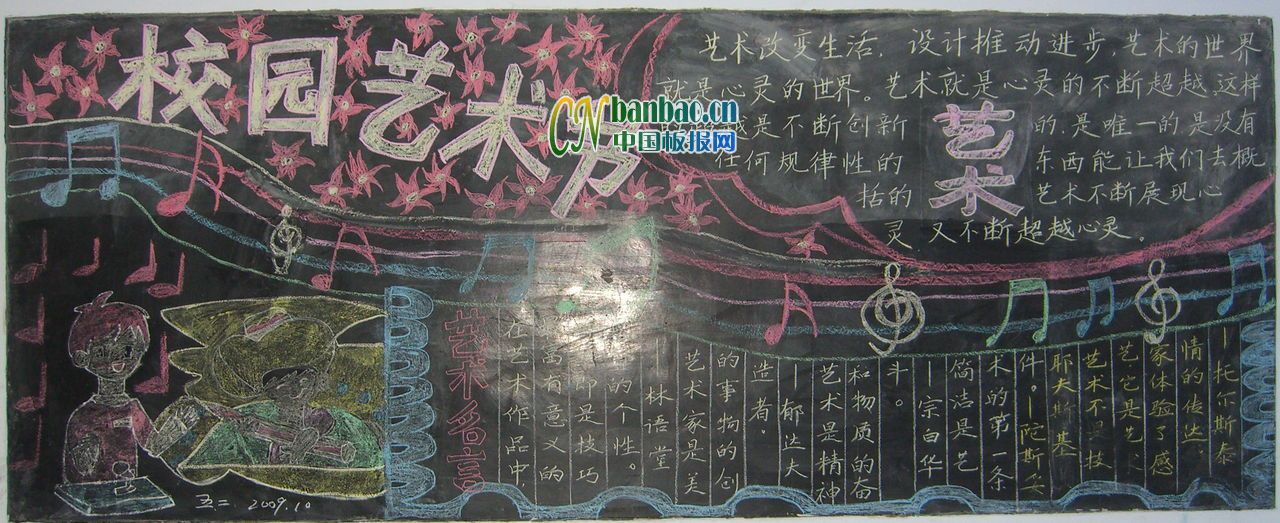 校园艺术节
CN banbao.cn
中国板报网
艺术改变生活，设计推动进步，艺术的世界
就是心灵的世界。艺术就是心灵的不断超越，这样
是不断创新 的，是唯一的是没有
任何规律性的 东西能让我们去概
括的 艺术不断展现心
灵又不断超越心灵。
艺术
艺术名言
在艺术作品中，
富有意义的
即是技巧
的个性。
林语堂
艺术家是美
的事物的创
造者。
—郁达夫
艺术是精神
和物质的奋
斗。
—宗白华
简洁是艺
术的第一条
件。—陀斯妥
耶夫斯基
艺术不是技
艺，它是艺术
家体验了感
情的传达。
—托尔斯泰
2009.10